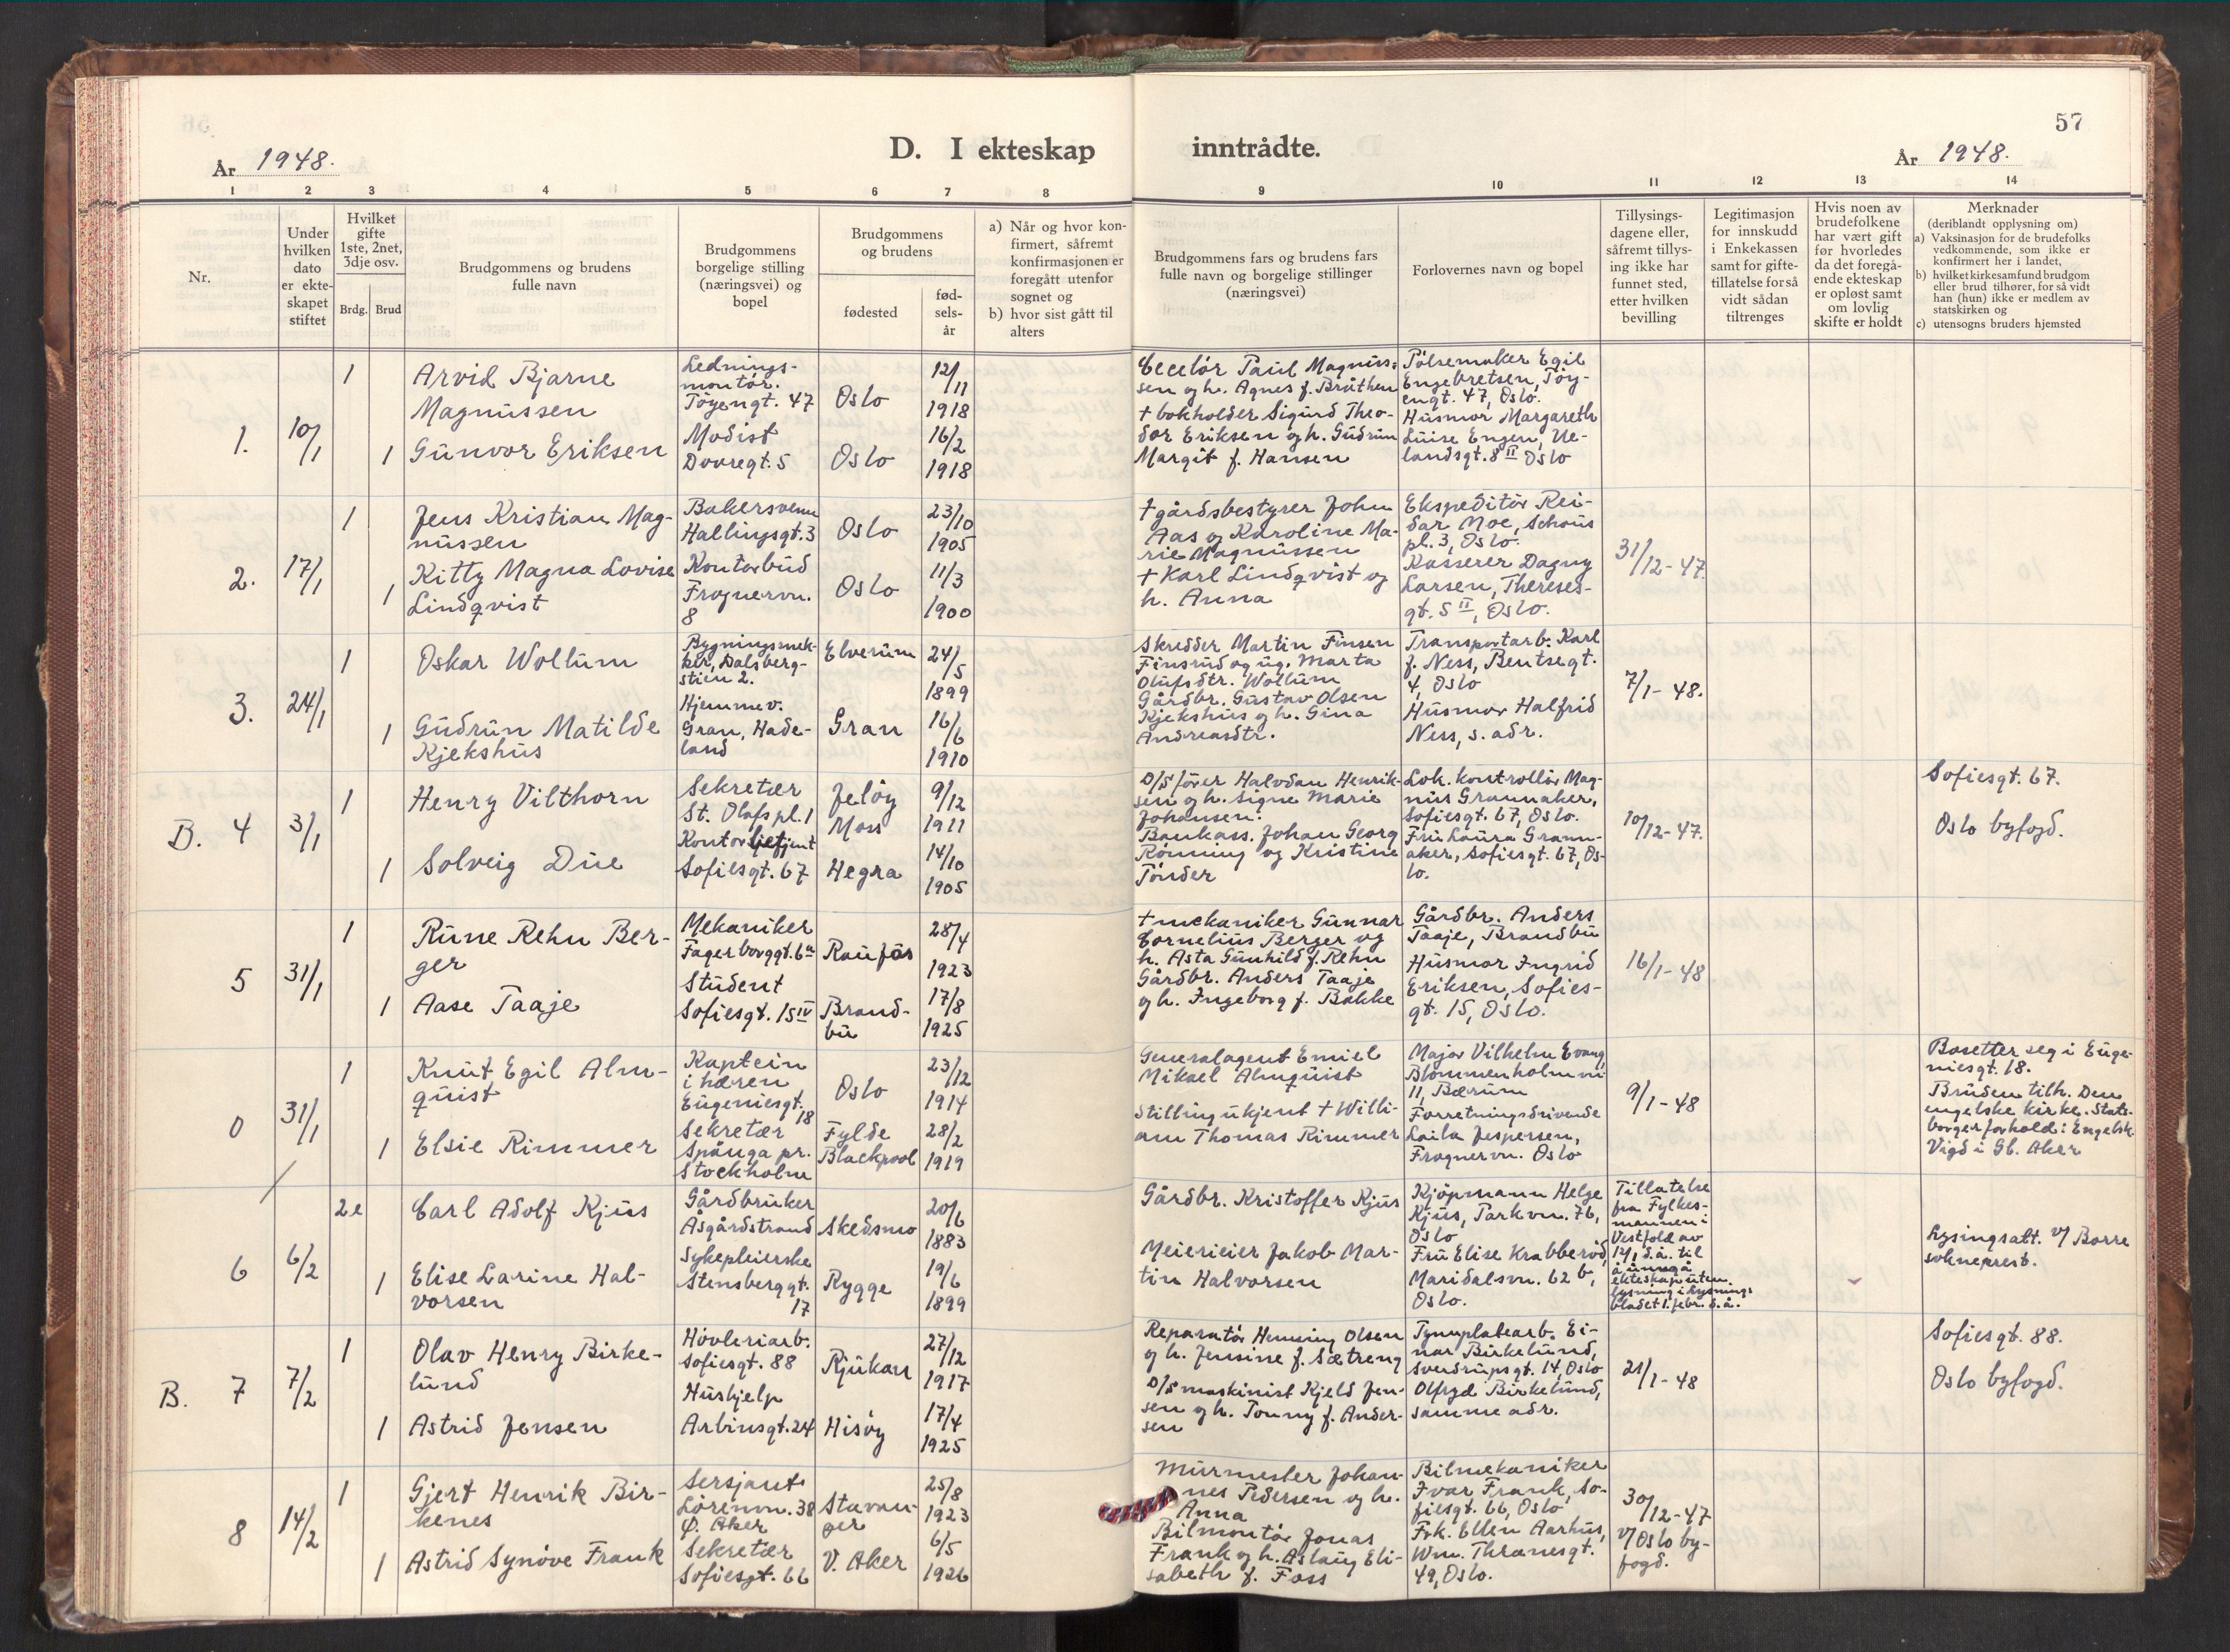 57
År 1948.
D. I ekteskap inntrådte.
År 1948.
1 2 3 4 5 6 7 8 9 10 11 12 13 14
Nr.
Under
hvilken
dato
er ekte-
skapet
stiftet
Hvilket
gifte
1ste, 2net,
3dje osv.
Brdg. Brud
Brudgommens og brudens
fulle navn
Brudgommens
borgelige stilling
(næringsvei) og
bopel
Brudgommens
og brudens
fødested
fød-
sels-
år
a) Når og hvor kon-
firmert, såfremt
konfirmasjonen er
foregått utenfor
sognet og
b) hvor sist gått til
alters
Brudgommens fars og brudens fars
fulle navn og borgelige stillinger
(næringsvei)
Forlovernes navn og bopel
Tillysings-
dagene eller,
såfremt tillys-
ing ikke har
funnet sted,
etter hvilken
bevilling
Legitimasjon
for innskudd
i Enkekassen
samt for gifte-
tillatelse for så
vidt sådan
tiltrenges
Hvis noen av
brudefolkene
har vært gift
før hvorledes
da det foregå-
ende ekteskap
er opløst samt
om lovlig
skifte er holdt
Merknader
(deriblandt opplysning om)
a) Vaksinasjon for de brudefolks
vedkommende, som ikke er
konfirmert her i landet,
b) hvilket kirkesamfund brudgom
eller brud tilhører, for så vidt
han (hun) ikke er medlem av
statskirken og
c) utensogns bruders hjemsted
1.
10/1
1
Arvid Bjarne
Magnussen
Lednings-
montør.
Töyengt. 47
Oslo
12/11
1918
1
Gunvor Eriksen
Modist
Dovregt. 5
Oslo
16/2
1918
Paul Magnus-
sen og h. Agnes f. Bruthen
+ bokholder Sigurd Theo-
dor Eriksen og h. Gudrun
Margit f. Hansen
Pølsemaker Egil
Engebretsen, Töy-
engt. 47, Oslo.
Husmor Margareth
Luise Engen, Ue-
landsgt. 8 II Oslo
2.
17/1
1
Jens Kristian Mag-
nussen
Bakersvenn
Hallingsgt. 3
Oslo
23/10
1905
1
Kitty Magna Lovise
Lindqvist
Kontorbud
Frognervn.
8
Oslo
11/3
1900
+ gårdsbestyrer John
Aas og Karoline Ma-
rie Magnussen
+ Karl Lindqvist og
h. Anna
Ekspeditör Rei-
dar Moe, Schous
pl. 3, Oslo.
Kasserer Dagny
Larsen, Thereses-
gt. 5 II, Oslo.
31/12-47.
3.
24/1
1
Oskar Wollum
Bygningssnek-
ker, Dalsberg-
stien 2.
Elverum
24/5
1899
1
Gudrun Matilde
Kjekshus
Hjemmev.
Gran, Hade-
land
Gran
16/6
1910
Skredder Martin Finsen
Finsrud og ug. Marta
Olufsdtr. Wollum
Gårdbr. Gustav Olsen
Kjekshus og h. Gina
Andreasdtr.
Transportarb. Karl
J. Ness, Bentsegt.
4, Oslo
Husmor Halfrid
Ness, s. adr.
7/1-48.
B. 4
31/1
1
Henry Vilthorn
Sekretær
St. Olafs pl. 1
Jelöy
Moss
9/12
1911
1
Solveig Due
Kontorbetjent
Sofiesgt. 67
Hegra
14/10
1905
D/S förer Halvdan Henrik-
sen og h. Signe Marie
Johansen.
Bankass. Johan Georg
Rönning og Kristine
Tönder
Lok. kontrollör Mag-
nus Grannaker,
Sofiesgt. 67, Oslo.
Fru Laura Grann-
aker, Sofiesgt. 67, Os-
lo.
10/12-47.
Sofiesgt. 67.
Oslo byfogd.
5
31/1
1
Rune Rehn Ber-
ger
Mekaniker
Fagerborggt. 6a
Raufos
28/4
1923
1
Aase Taaje
Student
Sofiesgt. 15 IV
Brand-
bu
17/8
1925
+ mekaniker Gunnar
Cornelius Berger og
h. Asta Gunhild f. Rehn
Gårdbr. Anders Taaje
og h. Ingeborg f. Bakke
Gårdbr. Anders
Taaje, Brandbu
Husmor Ingrid
Eriksen, Sofies-
gt. 15, Oslo.
16/1-48
0
31/1
1
Knut Egil Alm-
quist
Kaptein
i hæren
Eugeniesgt.
18
Oslo
23/12
1914
1
Elsie Rimmer
Sekretær
Spånga pr.
Stockholm
Fylde
Blackpool
28/2
1919
Generalagent Emiel
Mikael Almquist
Stilling ukjent + Willi-
am Thomas Rimmer
Major Vilhelm Evang
Blommenholmvn.
11, Bærum
Forretningsdrivende
Laila Jespersen,
Frognervn. Oslo
9/1-48
Bosetter seg i Euge-
niesgt. 18.
Bruden tilh. Den
engelske kirke. Stats-
borgerforhold: Engelsk
Vigd i Gl. Aker
6
6/2
2e
Carl Adolf Kjus
Gårdbruker
Åsgårdstrand
Skedsmo
20/6
1883
1
Elise Larine Hal-
vorsen
Sykepleierske
Stensberggt.
17
Rygge
19/6
1899
Gårdbr. Kristoffer Kjus
Meierieier Jakob Mar-
tin Halvorsen
Kjöpmann Helge
Kjus, Parkvn. 76,
Oslo
Fru Elise Krabberöd,
Maridalsvn. 62 b,
Oslo.
Tillatelse
fra Fylkes-
mannen i
Vestfold av
14/1 d.å. til
å unngå
ekteskap uten
lysning i Lysnings-
bladet 1. febr. d.å.
Lysingsatt. v/ Borre
sokneprest.
B. 7
7/2
1
Olav Henry Birke-
lund
Hövleriarb.
Sofiesgt. 88
Rjukan
27/12
1917
1
Astrid Jensen
Hushjelp
Arbinsgt. 24
Hisöy
17/4
1925
Reparatör Henning Olsen
og h. Jensine f. Sætreng
D/S maskinist Kjeld Jen-
sen og h. Tonny f. Ander-
sen
Tynnplatearb. Ei-
nar Birkelund,
Sverdrupsgt. 14, Oslo
Olfryd Birkelund,
samme adr.
21/1-48
Sofiesgt. 88.
Oslo byfogd.
8
14/2
1
Gjert Henrik Bir-
kenes
Sersjant
Lörenvn. 38
Ö. Aker
Stavan-
ger
25/8
1923
1
Astrid Synöve Frank
Sekretær
Sofiesgt. 66
V. Aker
6/5
1926
Murmester Johan-
nes Pedersen og h.
Anna
Bilmontör Jonas
Frank og h. Aslaug Eli-
sabeth f. Foss
Bilmekaniker
Ivar Frank, So-
fiesgt. 66, Oslo
Frk. Ellen Aarhus,
Wm. Thranesgt.
49, Oslo.
30/12-47
v/ Oslo by-
fogd.